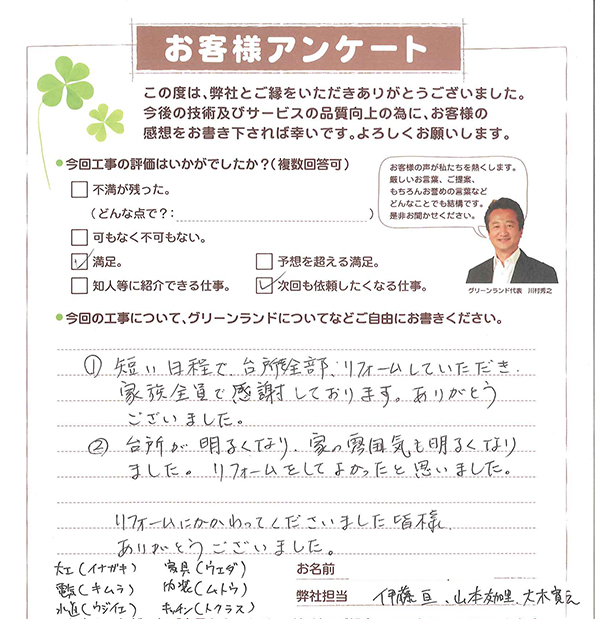 お客様アンケート
この度は、弊社とご縁をいただきありがとうございました。
今後の技術及びサービスの品質向上の為に、お客様の
感想をお書き下されば幸いです。よろしくお願いします。
今回工事の評価はいかがでしたか？（複数回答可）
不満が残った。
（どんな点で？：　）
可もなく不可もない。
満足。
予想を超える満足。
知人等に紹介できる仕事。
次回も依頼したくなる仕事。
お客様の声が私たちを熱くします。
厳しいお言葉、ご提案、
もちろんお誉めの言葉など
どんなことでも結構です。
是非お聞かせください。
グリーンランド代表　川村秀之
今回の工事について、グリーンランドについてなどご自由にお書きください。
① 短い日程で、台所全部、リフォームしていただき、
家族全員で感謝しております。ありがとう
ございました。
② 台所が明るくなり、家の雰囲気も明るくなり
ました。リフォームをしてよかったと思いました。
リフォームにかかわってくださいました皆様、
ありがとうございました。
大工（イナガキ）　家具（ウエダ）
電気（キムラ）　内装（ムトウ）
水道（ウジイエ）　キッチン（トクラス）
お名前
弊社担当　伊藤亘、山本、大木